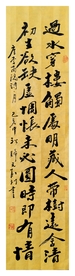 過水穿樓觸處明藏人帶樹遠含清
初生欲缺虛惆悵未必圓時即有情